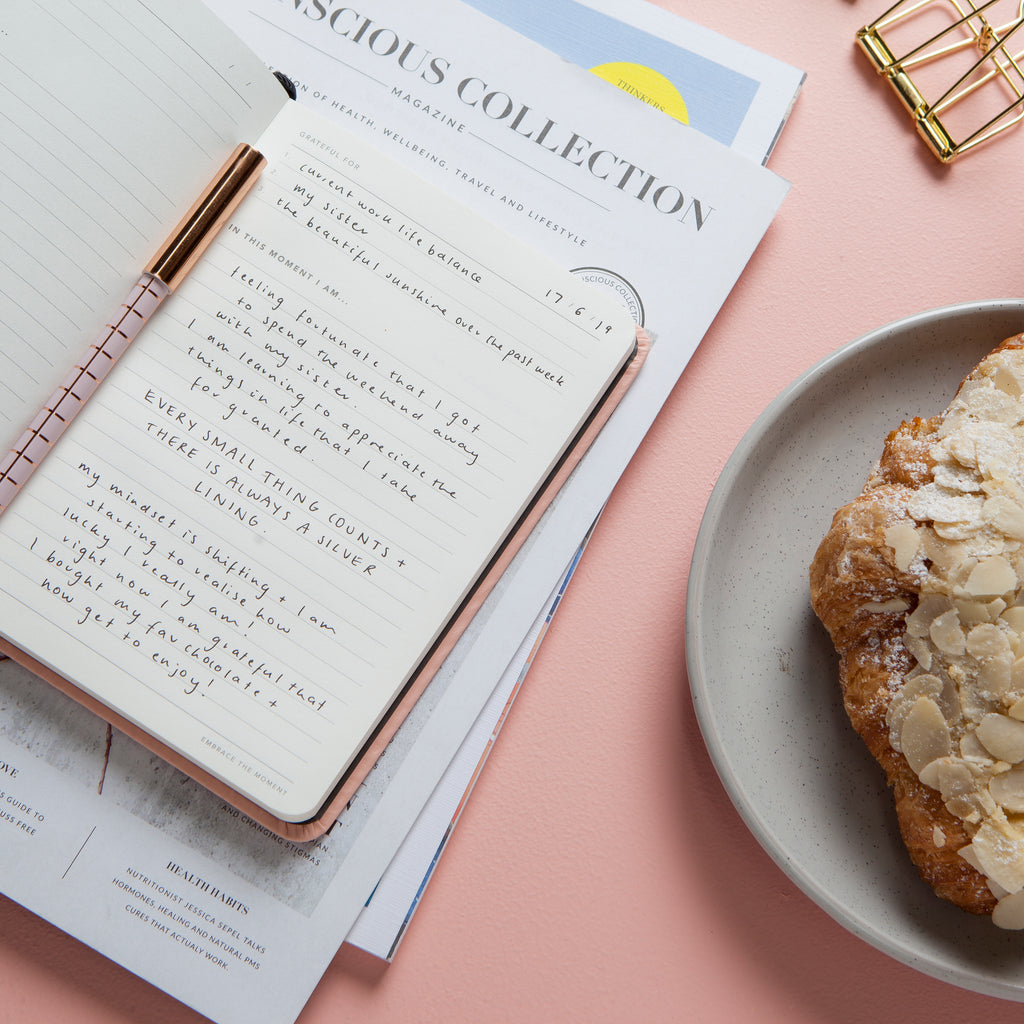 NSCIOUS COLLECTION
MAGAZINE
ON OF HEALTH, WELLBEING, TRAVEL AND LIFESTYLE
THINKERS
SCIOUS COLLEC
GRATEFUL FOR
1. current work life balance
2. my sister
3. the beautiful sunshine over the past week
17/6/19
IN THIS MOMENT I AM...
feeling fortunate that I got
to spend the weekend away
with my sister.
I am learning to appreciate the
things in life that I take
for granted.
EVERY SMALL THING COUNTS +
THERE IS ALWAYS A SILVER
LINING.
my mindset is shifting + I am
starting to realise how
lucky I really am!
right now I am grateful that
I bought my fav chocolate +
now get to enjoy!
EMBRACE THE MOMENT
AND CHANGING STIGMAS
OVE
S GUIDE TO
USS FREE
HEALTH HABITS
NUTRITIONIST JESSICA SEPEL TALKS
HORMONES, HEALING AND NATURAL PMS
CURES THAT ACTUALY WORK.